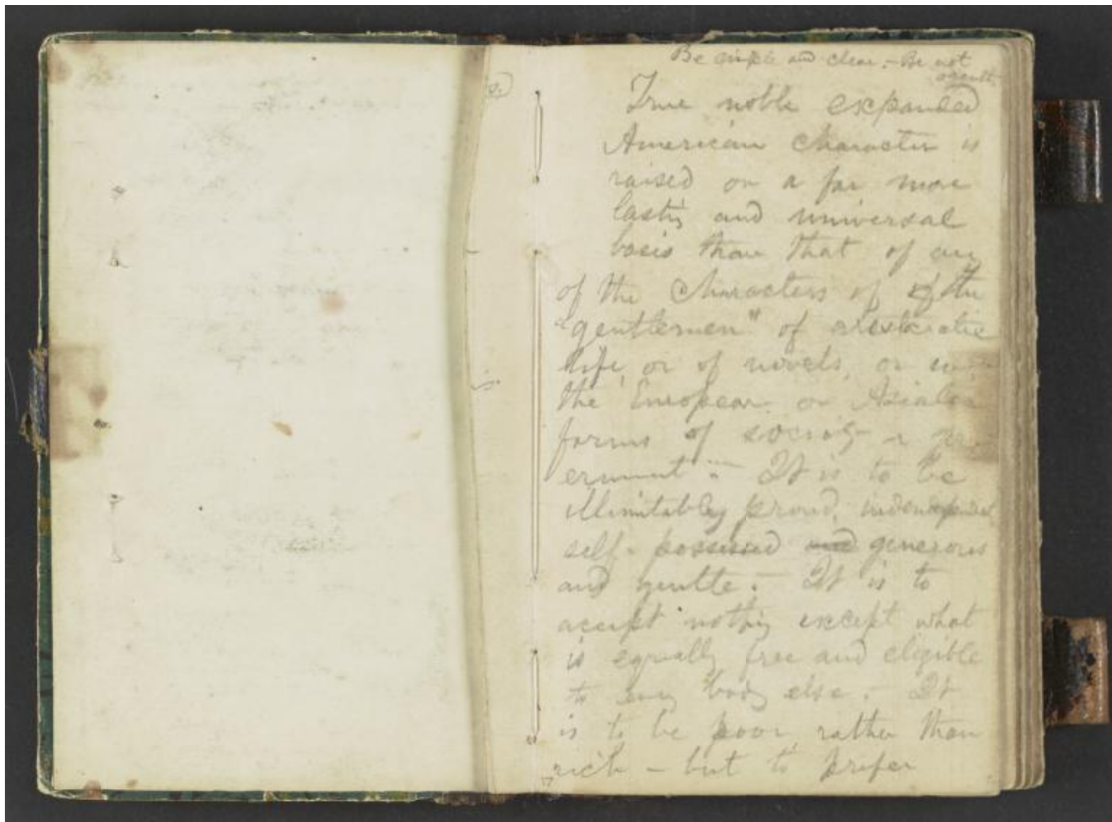 Be simple and clear.—Be not
occult.
True noble expanded
American Character is
raised on a far more
lastig and universal
basis than that of any
of the characters of of the
"gentlemen" of aristocratic
life, or of novels, or
the European or Asiatic
forms of society or gov-
ernment.— It is to be
illimitably proud, independent
self-possessed and generous
and gentle.— It is to
accept nothing except what
is equally free and eligible
to any body else.— It
is to be poor rather than
rich — but to prefer
is.